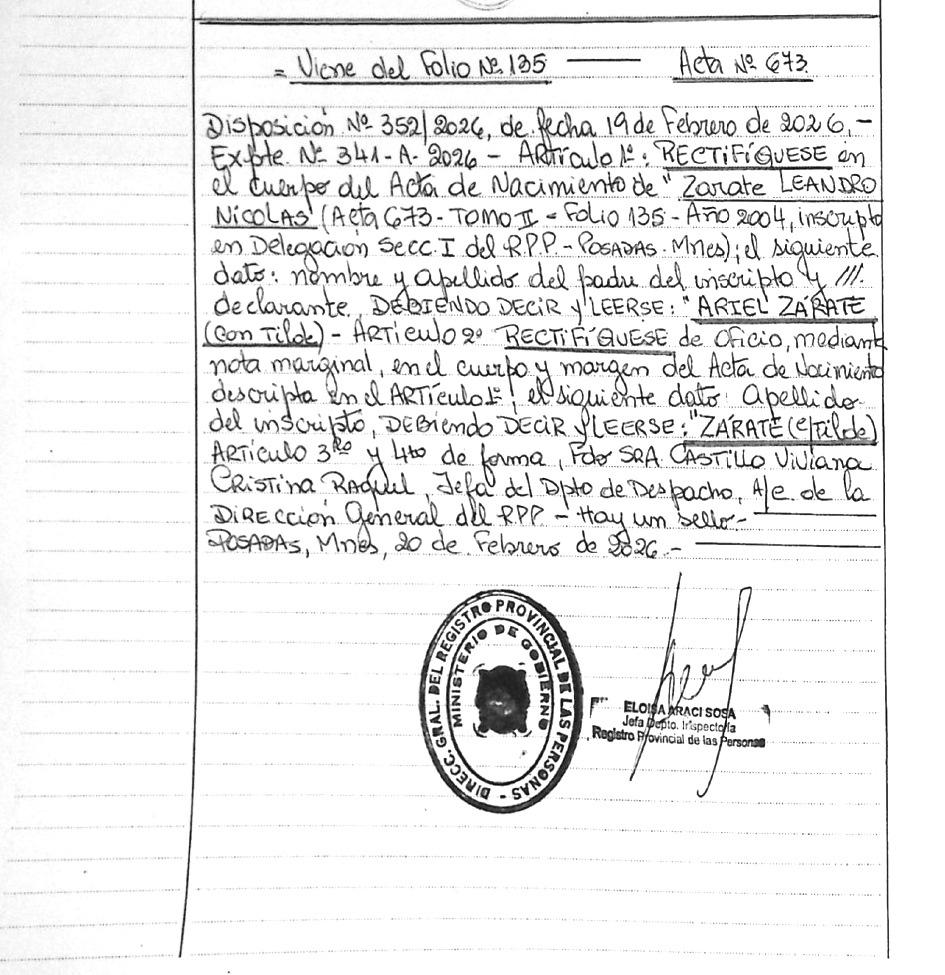 = Viene del Folio Nº 135 —— Acta Nº 673
Disposición Nº 352/2026, de fecha 19 de Febrero de 2026.-
Expte. Nº 341-A-2026 - ARTÍCULO 1º: RECTIFÍQUESE en
el cuerpo del Acta de Nacimiento de "Zarate LEANDRO
NICOLAS" (Acta 673 - TOMO II - Folio 135 - AÑO 2004, inscripto
en Delegación Secc. I del R.P.P. - POSADAS. Mnes); el siguiente
dato: nombre y apellido del padre del inscripto y ///.
declarante, DEBIENDO DECIR Y LEERSE: "ARIEL ZÁRATE
(con Tilde) - ARTÍCULO 2º RECTIFÍQUESE de oficio, mediante
nota marginal, en el cuerpo y margen del Acta de Nacimiento
descripta en el ARTÍCULO 1º, el siguiente dato: apellido
del inscripto, DEBIENDO DECIR Y LEERSE: "ZÁRATE (c/tilde)
ARTÍCULO 3RO y 4to de forma, Fdo SRA CASTILLO Viviana
CRISTINA RAQUEL, Jefa del Dpto de Despacho, A/e de la
DIRECCIÓN General del RPP - Hay un sello.-
POSADAS, Mnes, 20 de Febrero de 2026.-
DIRECC. GRAL. DEL REGISTRO PROVINCIAL DE LAS PERSONAS -
MINISTERIO DE GOBIERNO
ELOISA ARACI SOSA
Jefa Depto. Inspectoría
Registro Provincial de las Personas